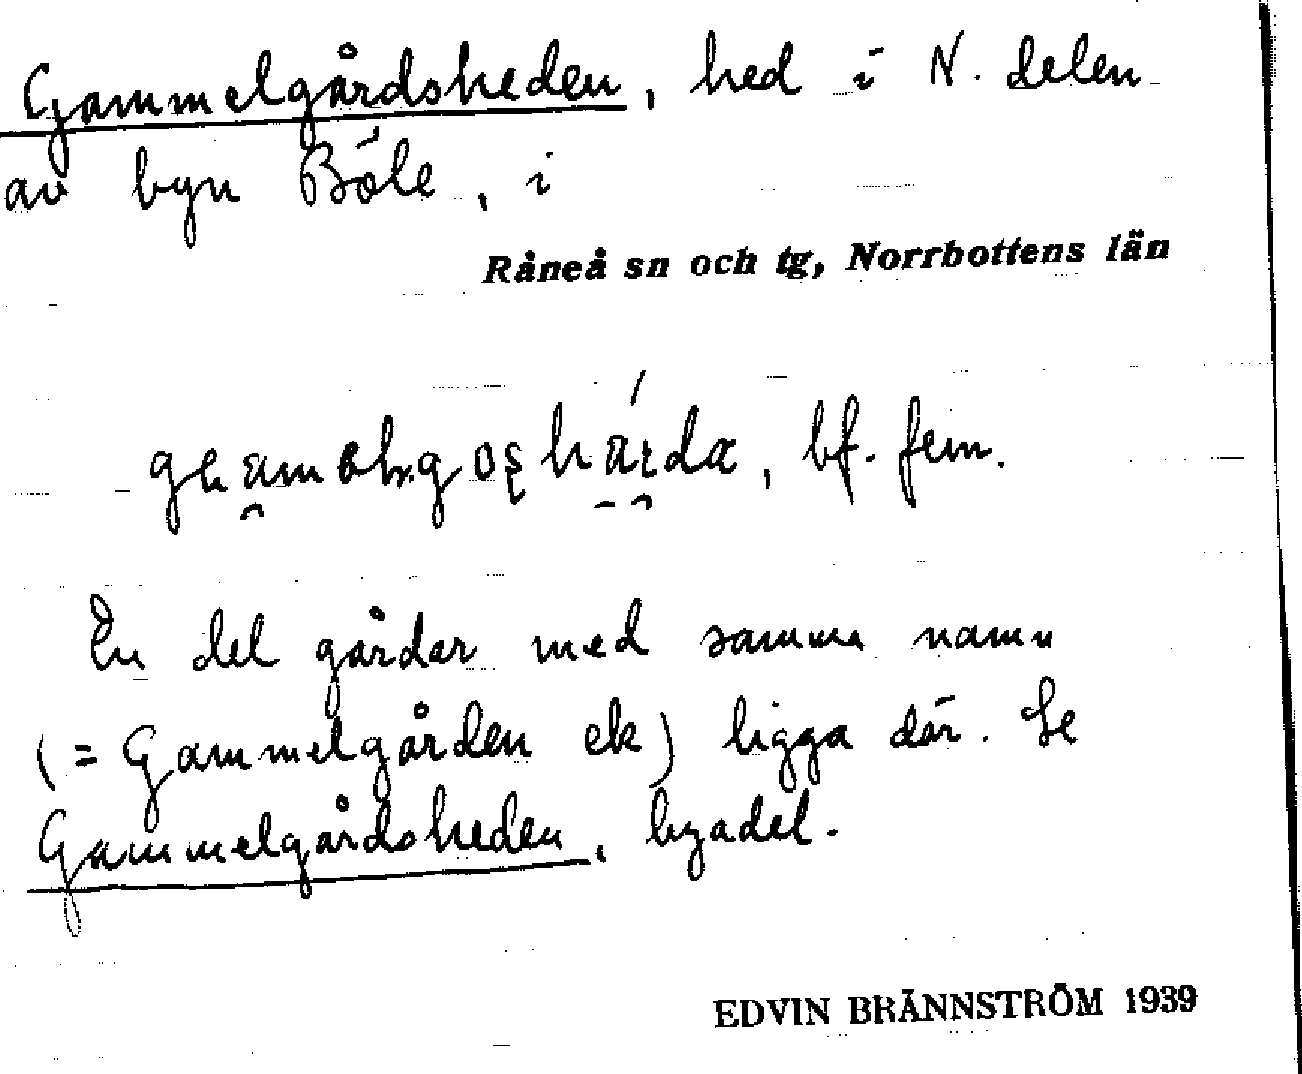 Gammelgårdsheden, hed i N. delen
av byn Böle, i
Råneå sn och tg, Norrbottens län
bf. fem.
En del gårdar med samma namn
(= Gammelgården ek) ligga där. Se
Gammelgårdsheden, byadel.
EDVIN BRÄNNSTRÖM 1939